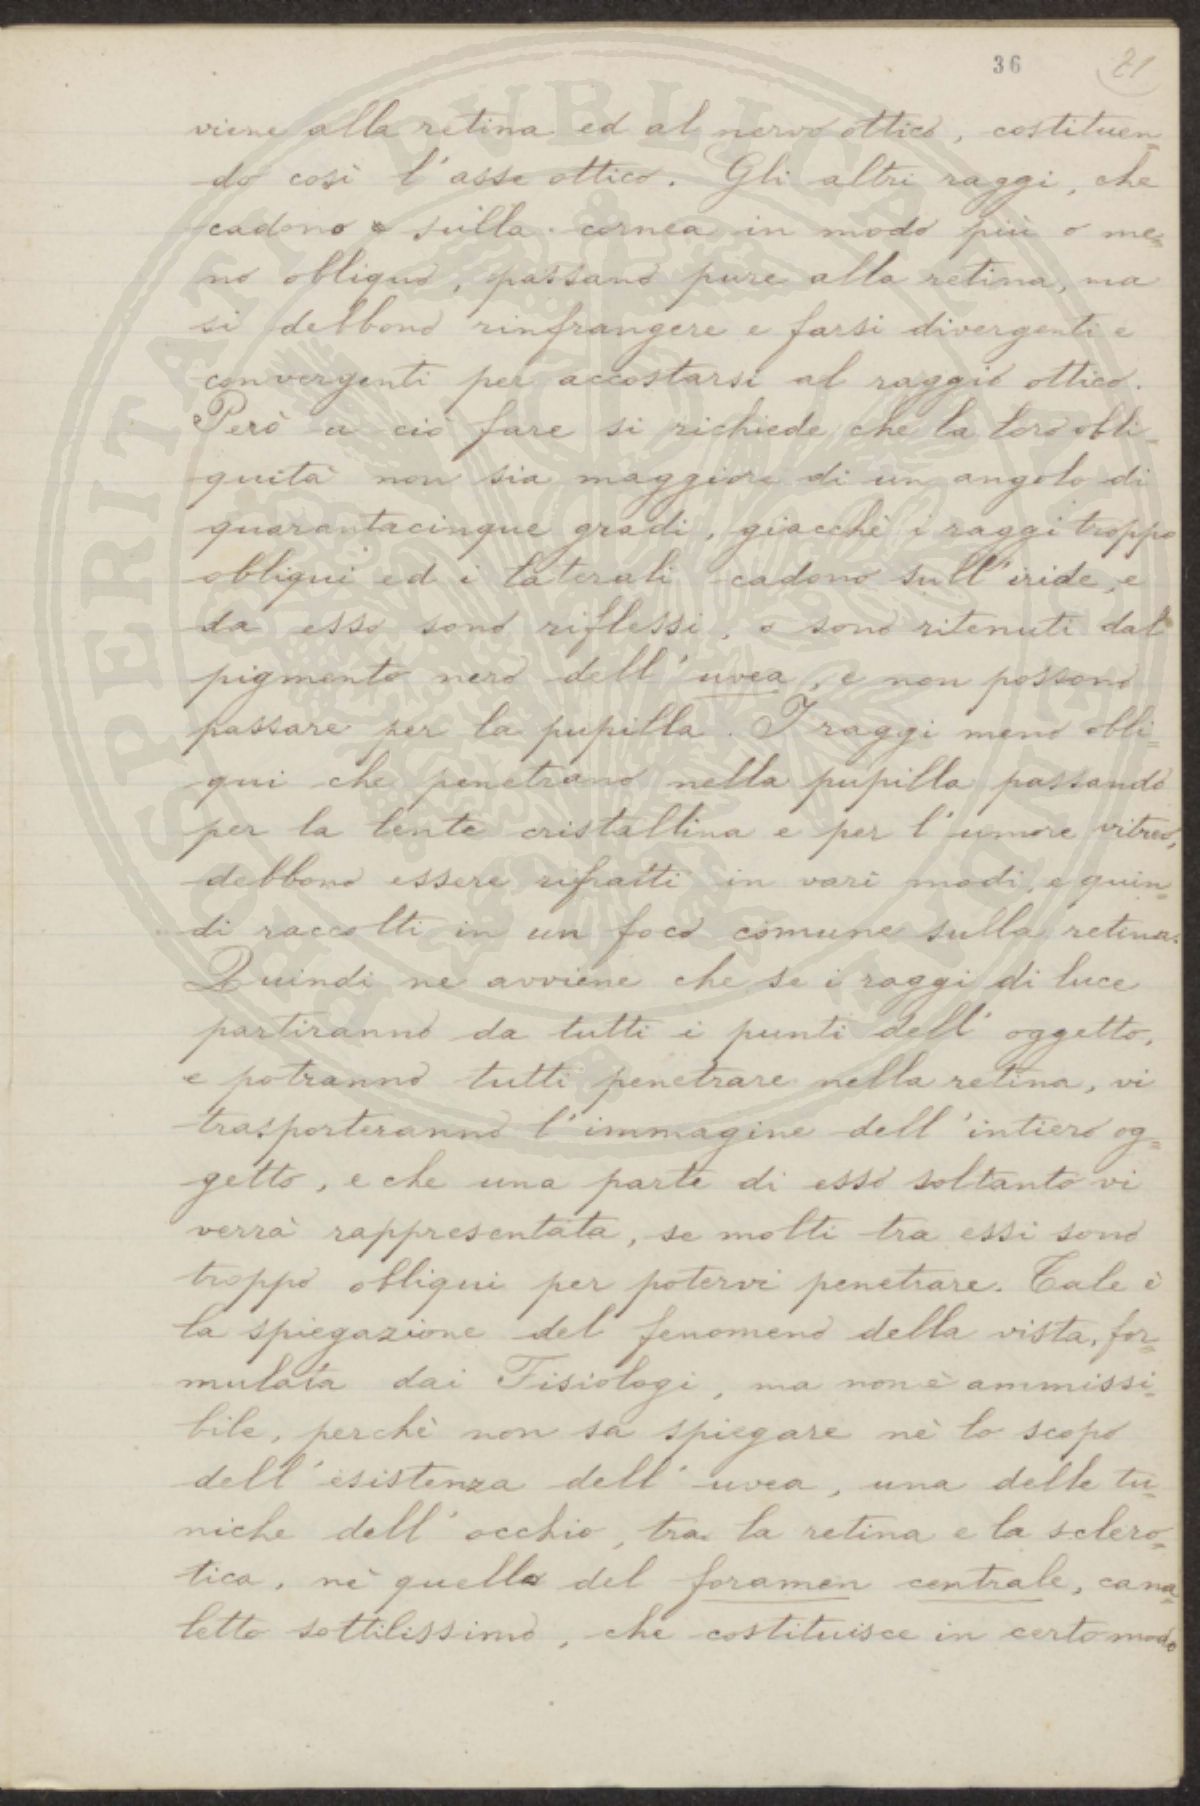 36
21
viene alla retina ed al nervo ottico, costituen=
do così l'asse ottico. Gli altri raggi, che
cadono sulla cornea in modo più o me=
no obliquo, passano pure alla retina, ma
si debbono rinfrangere e farsi divergenti e
convergenti per accostarsi al raggio ottico.
Però a ciò fare si richiede che la loro obli=
quità non sia maggiore di un angolo di
quarantacinque gradi, giacchè i raggi troppo
obliqui ed i laterali cadono sull'iride, e
da esso sono riflessi, o sono ritenuti dal
pigmento nero dell'uvea, e non possono
passare per la pupilla. I raggi meno obli=
qui che penetrano nella pupilla passando
per la lente cristallina e per l'umore vitreo,
debbono essere rifratti in vari modi, e quin=
di raccolti in un foco comune sulla retina.
Quindi ne avviene che se i raggi di luce
partiranno da tutti i punti dell'oggetto,
e potranno tutti penetrare nella retina, vi
trasporteranno l'immagine dell'intiero og=
getto, e che una parte di esso soltanto vi
verrà rappresentata, se molti tra essi sono
troppo obliqui per potervi penetrare. Tale è
la spiegazione del fenomeno della vista, for=
mulata dai Fisiologi, ma non è ammissi=
bile, perchè non sa spiegare nè lo scopo
dell'esistenza dell'uvea, una delle tu=
niche dell'occhio, tra la retina e la sclero=
tica, nè quello del foramen centrale, cana=
letto sottilissimo, che costituisce in certo modo
PROSPERITATI PUBLICAE AUGENDAE